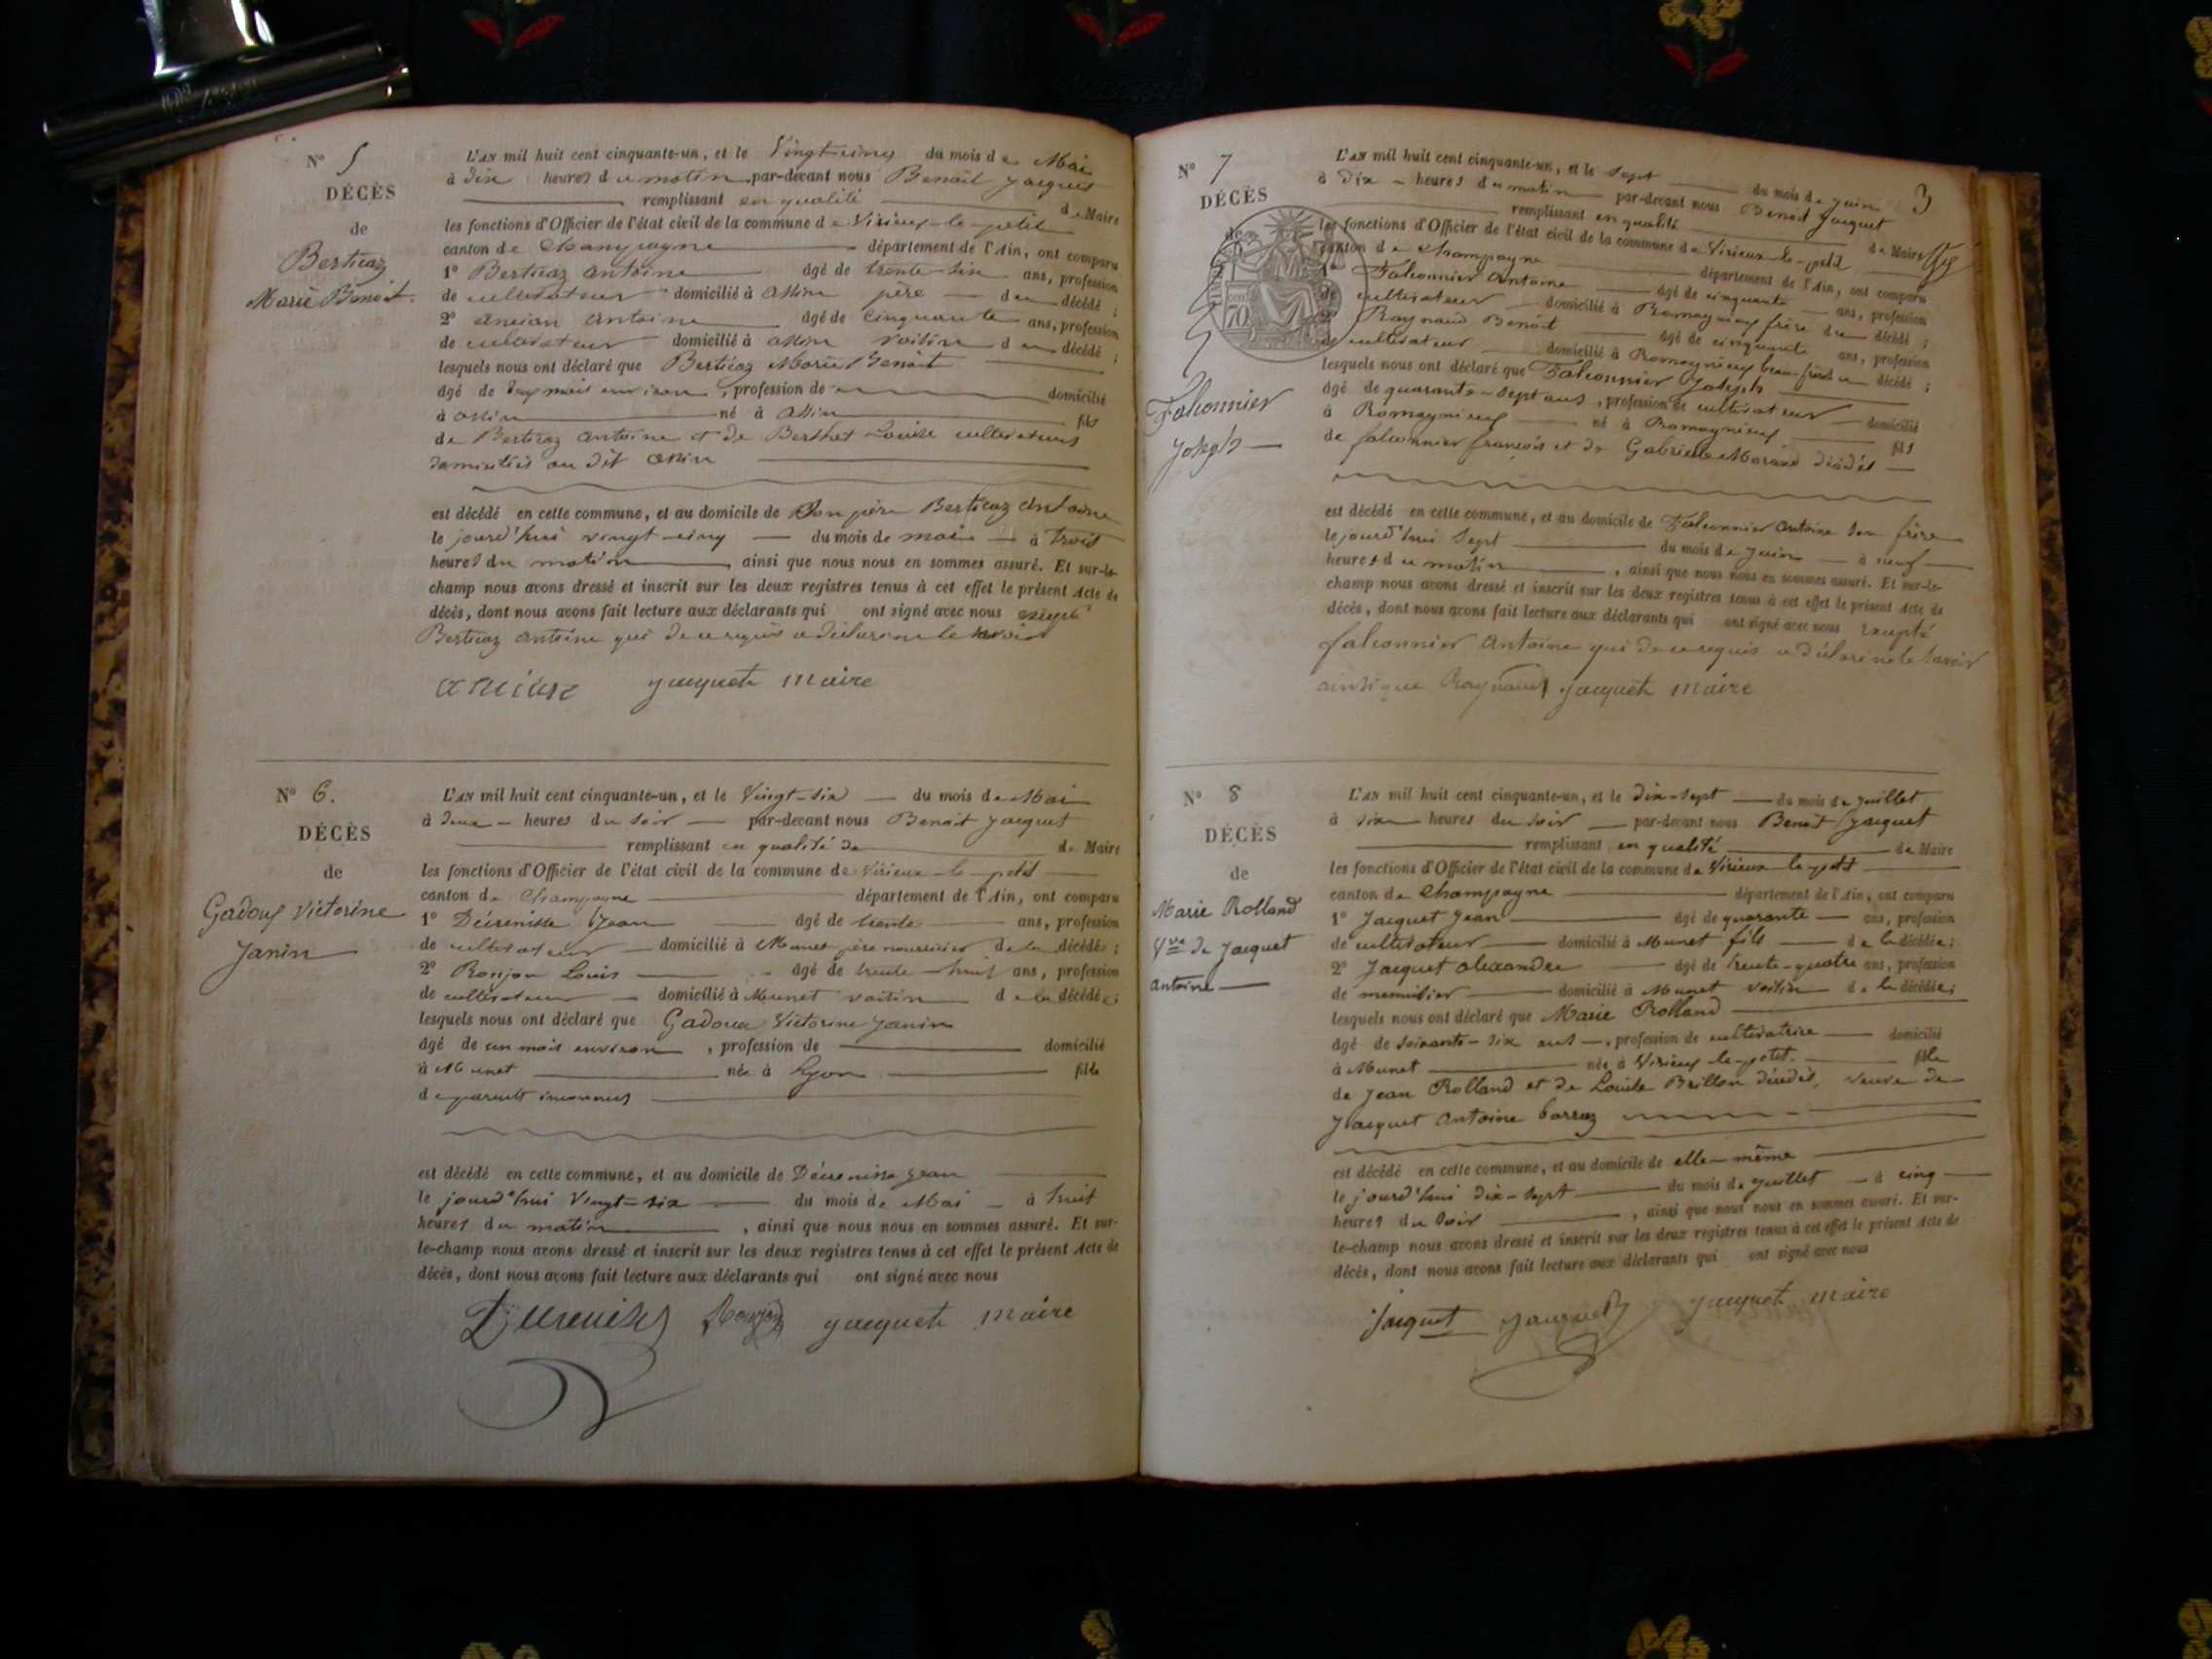 N° 5
DÉCÈS
de
Berticaz
Marie Benoit.
L'AN mil huit cent cinquante-un, et le Vingt-cinq du mois de Mai
à dix heures du matin par-devant nous Benoit Jacquet
remplissant en qualité de Maire
les fonctions d'Officier de l'état civil de la commune de Virieux-le-petit
canton de Champagne département de l'Ain, ont comparu
1° Berticaz Antoine âgé de trente-six ans, profession
de cultivateur domicilié à Assin père du décédé ;
2° Ancian Antoine âgé de Cinquante ans, profession
de cultivateur domicilié à Assin voisin du décédé ;
lesquels nous ont déclaré que Berticaz Marie Benoit
âgé de deux mois environ, profession de domicilié
à Assin né à Assin fils
de Berticaz Antoine et de Berthet Louise cultivateurs
domiciliés au dit Assin
est décédé en cette commune, et au domicile de Son père Berticaz Antoine
le jourd'hui vingt-cinq du mois de mai à trois
heures du matin, ainsi que nous nous en sommes assuré. Et sur-le-
champ nous avons dressé et inscrit sur les deux registres tenus à cet effet le présent Acte de
décès, dont nous avons fait lecture aux déclarants qui ont signé avec nous excepté
Berticaz Antoine qui de ce requis a déclaré ne le savoir
jacquet maire
N° 6.
DÉCÈS
de
Gadoux Victorine
Janin
L'AN mil huit cent cinquante-un, et le Vingt-six du mois de Mai
à deux heures du soir par-devant nous Benoit Jacquet
remplissant en qualité de de Maire
les fonctions d'Officier de l'état civil de la commune de Virieux-le-petit
canton de Champagne département de l'Ain, ont comparu
1° Jean âgé de trente ans, profession
de cultivateur domicilié à Munet père nourricier de la décédée ;
2° Ronjon Louis âgé de trente-huit ans, profession
de cultivateur domicilié à Munet voisin de la décédée ;
lesquels nous ont déclaré que Gadoux Victorine Janin
âgé de un mois environ, profession de domicilié
à Munet née à Lyon fille
de parents inconnus
est décédé en cette commune, et au domicile de Jean
le jourd'hui Vingt-six du mois de Mai à huit
heures du matin, ainsi que nous nous en sommes assuré. Et sur-
le-champ nous avons dressé et inscrit sur les deux registres tenus à cet effet le présent Acte de
décès, dont nous avons fait lecture aux déclarants qui ont signé avec nous
jacquet maire
3
N° 7
DÉCÈS
de
Falconnier
Joseph
L'AN mil huit cent cinquante-un, et le sept du mois de juin
à dix heures du matin par-devant nous Benoit Jacquet
remplissant en qualité de Maire
les fonctions d'Officier de l'état civil de la commune de Virieux-le-petit
canton de Champagne département de l'Ain, ont comparu
1° Falconnier Antoine âgé de cinquante ans, profession
de cultivateur domicilié à Romagnieux frère du décédé ;
2° Raynaud Benoit âgé de cinquante ans, profession
de cultivateur domicilié à Romagnieux beau-frère du décédé ;
lesquels nous ont déclaré que Falconnier Joseph
âgé de quarante-sept ans, profession de cultivateur domicilié
à Romagnieux né à Romagnieux fils
de falconnier françois et de Gabrielle Morand décédés
est décédé en cette commune, et au domicile de Falconnier Antoine son frère
le jourd'hui Sept du mois de juin à neuf
heures du matin, ainsi que nous nous en sommes assuré. Et sur-le-
champ nous avons dressé et inscrit sur les deux registres tenus à cet effet le présent Acte de
décès, dont nous avons fait lecture aux déclarants qui ont signé avec nous excepté
falconnier Antoine qui de ce requis a déclaré ne le savoir
ainsi que Raynaud jacquet maire
N° 8
DÉCÈS
de
Marie Rolland
Vve de Jacquet
Antoine
L'AN mil huit cent cinquante-un, et le dix-sept du mois de juillet
à six heures du soir par-devant nous Benoit Jacquet
remplissant en qualité de Maire
les fonctions d'Officier de l'état civil de la commune de Virieux-le-petit
canton de Champagne département de l'Ain, ont comparu
1° Jacquet Jean âgé de quarante ans, profession
de cultivateur domicilié à Munet fils de la décédée ;
2° Jacquet Alexandre âgé de trente-quatre ans, profession
de menuisier domicilié à Munet voisin de la décédée ;
lesquels nous ont déclaré que Marie Rolland
âgé de soixante-six ans, profession de cultivatrice domicilié
à Munet née à Virieux-le-petit. fille
de Jean Rolland et de Louise Brillon décédés, veuve de
Jacquet Antoine barraz
est décédé en cette commune, et au domicile de elle-même
le jourd'hui dix-sept du mois de juillet à cinq
heures du soir, ainsi que nous nous en sommes assuré. Et sur-
le-champ nous avons dressé et inscrit sur les deux registres tenus à cet effet le présent Acte de
décès, dont nous avons fait lecture aux déclarants qui ont signé avec nous
jacquet jacquet jacquet maire